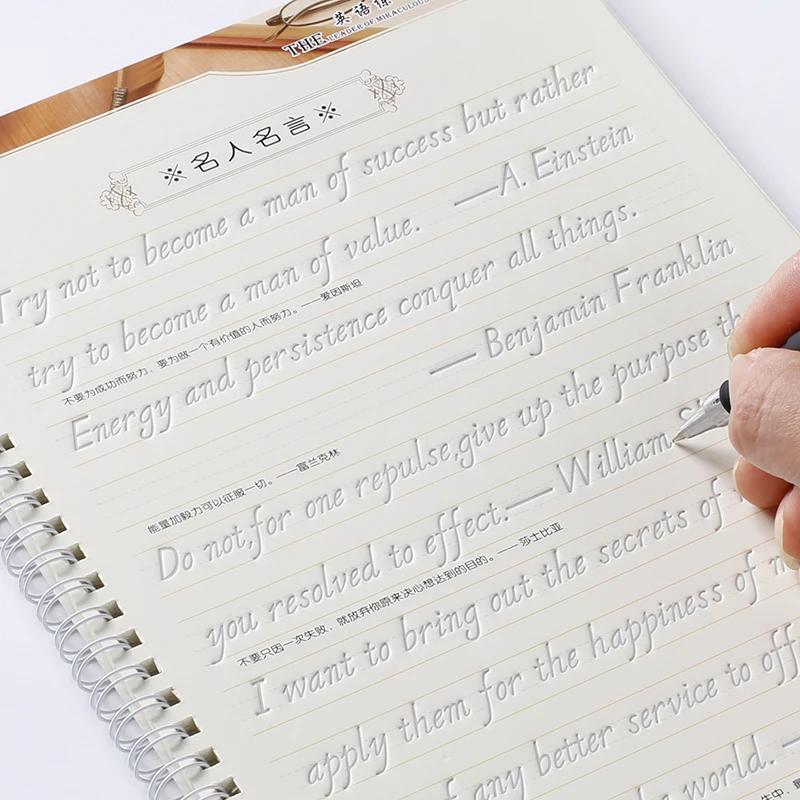 THE 英语练
LEADER OF MIRACULOUS
※名人名言※
Try not to become a man of success but rather
try to become a man of value. —A. Einstein
不要为成功而努力，要为做一个有价值的人而努力。——爱因斯坦
Energy and persistence conquer all things.
— Benjamin Franklin
能量加毅力可以征服一切。——富兰克林
Do not,for one repulse,give up the purpose th
you resolved to effect.—William
不要只因一次失败，就放弃你原来决心想达到的目的。—— 莎士比亚
I want to bring out the secrets of
apply them for the happiness of
of any better service to off
the world. —
生中，